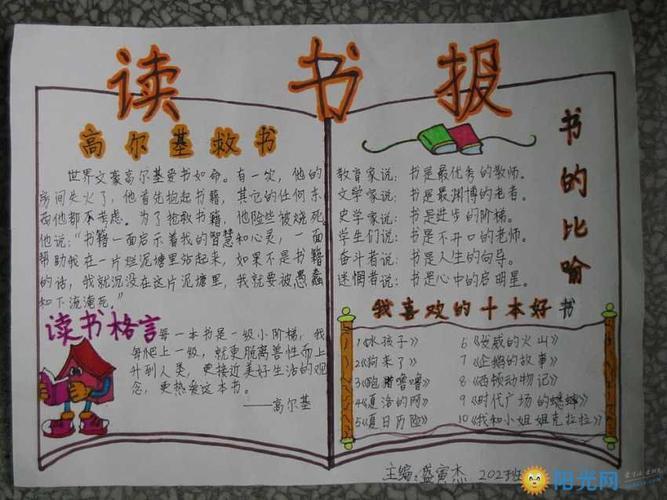 读书报
高尔基救书
世界文豪高尔基爱书如命。有一次，他的
房间失火了，他首先抱起书籍，其它的任何东
西他都不考虑。为了抢救书籍，他险些被烧死。
他说：“书籍一面启示着我的智慧和心灵，一面
帮助我在一片烂泥塘里站起来，如果不是书籍
的话，我就沉没在这片泥塘里，我就要被愚蠢
和下流淹死。”
读书格言
每一本书是一级小阶梯，我
每爬上一级，就更脱离兽性而上
升到人类，更接近美好生活的观
念，更热爱这本书。
——高尔基
书的比喻
教育家说：书是最优秀的教师。
文学家说：书是最渊博的老者。
史学家说：书是进步的阶梯。
学生们说：书是不开口的老师。
奋斗者说：书是人生的向导。
迷惘者说：书是心中的启明星。
我喜欢的十本好书
1《水孩子》
2《狗来了》
3《跑猪噜噜》
4《夏洛的网》
5《夏日历险》
6《发威的火山》
7《企鹅的故事》
8《西顿动物记》
9《时代广场的蟋蟀》
10《我和小姐姐克拉拉》
主编：盛寅杰 202班
阳光网